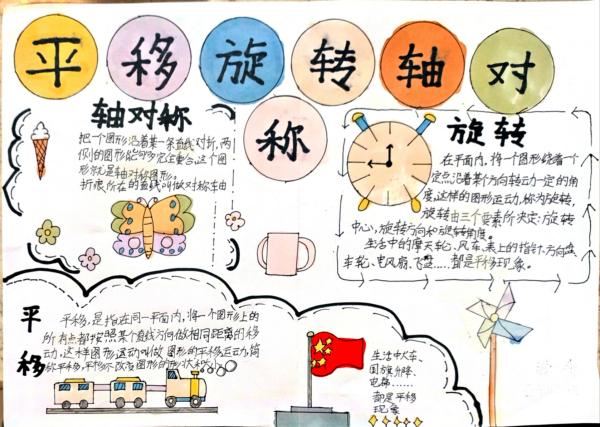 平移旋转轴对
称
轴对称
把一个图形沿着某一条直线对折,两
侧的图形能够完全重合,这个图
形就是轴对称图形。
折痕所在的直线叫做对称轴
旋转
在平面内,将一个图形绕着一个
定点沿着某个方向转动一定的角
度,这样的图形运动,称为旋转,
旋转由三个要素所决定:旋转
中心,旋转方向和旋转角度。
生活中的摩天轮、风车、表上的指针、方向盘
车轮、电风扇、飞盘……都是平移现象。
平移
平移,是指在同一平面内,将一个图形上的
所有点都按照某个直线方向做相同距离的移
动,这样图形运动叫做图形的平移运动,简
称平移,平移不改变图形的形状和大小
生活中火车、
国旗升降、
电梯……
都是平移
现象